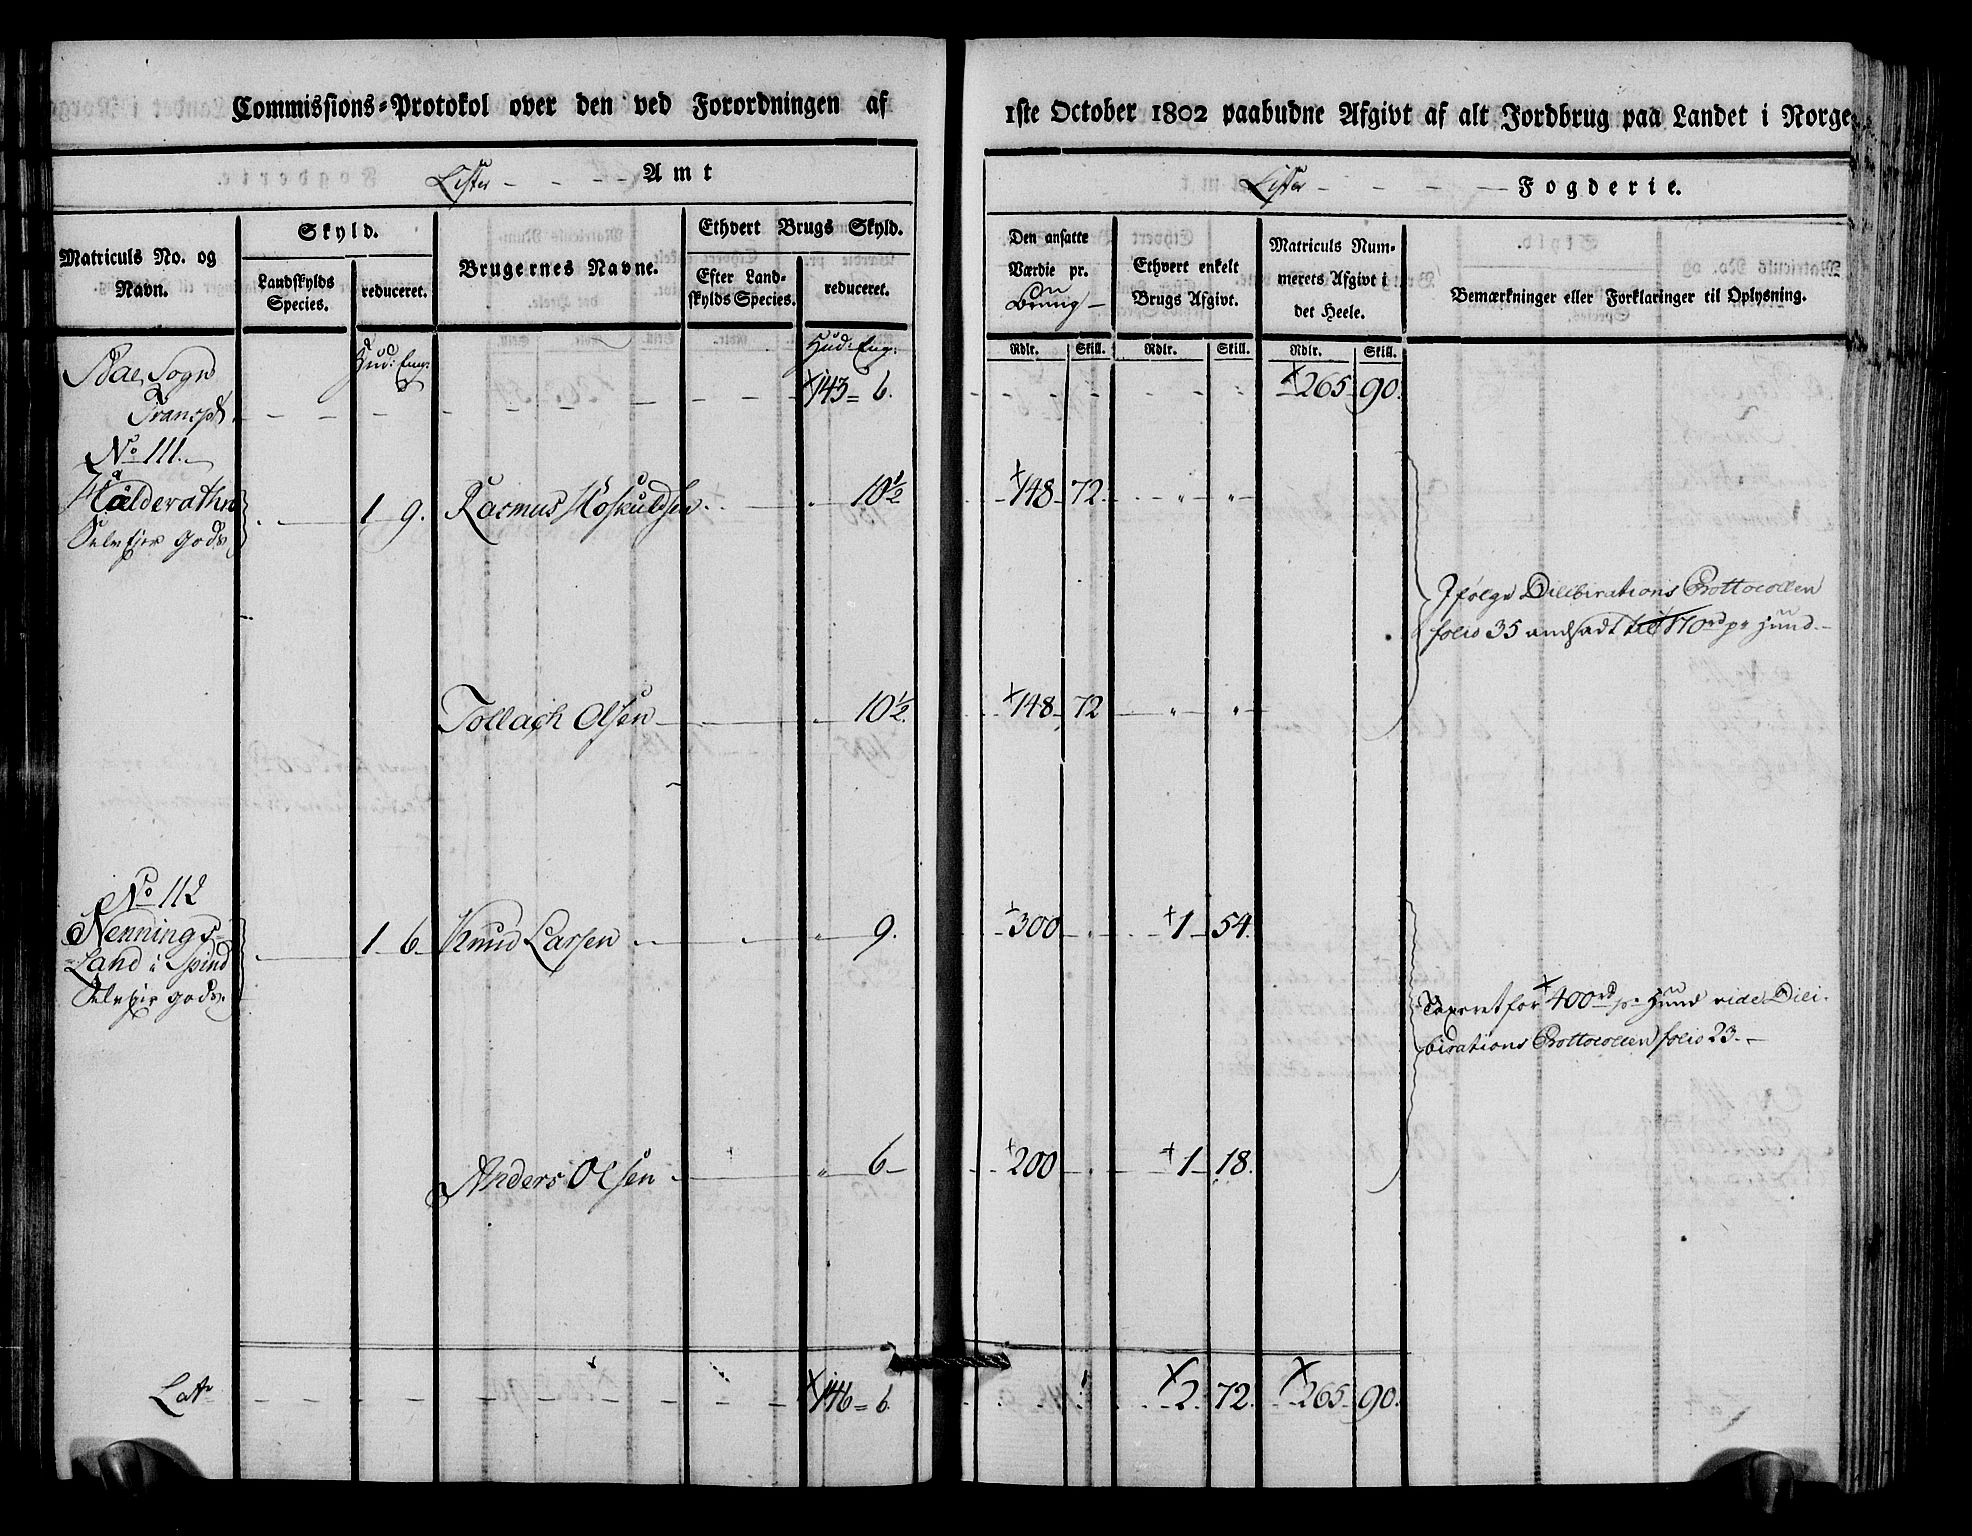 Commissions-Protokol over den ved Forordningen af
Lister - - - Amt
Matriculs No. og Navn.
Skyld.
Landskylds Species.
reduceret.
Brugernes Navne.
Ethvert Brugs Skyld.
Efter Landskylds Species.
reduceret.
Hud: Eng:
Hud: Eng:
Sogn
Transpt - - - - - 143 = 6.
No 111.
Hælderathn
Selveier Gods
1 9. Rasmus Höskuldsen " 10½
Tollach Olsen " 10½.
No 112
Nennings-
Land i Spind
Selveier Gods.
1 6. Knud Larsen " 9.
Anders Olsen " 6
Latr - - - - - 146 = 6.
1ste October 1802 paabudne Afgivt af alt Jordbrug paa Landet i Norge.
Lister - - - - Fogderie.
Den ansatte Værdie pr.
Ethvert enkelt Brugs Afgivt.
Matriculs Nummerets Afgivt i det Heele.
Bemærkninger eller Forklaringer til Oplysning.
Rdlr. Skill. Rdlr. Skill. Rdlr. Skill.
265 90.
148 72. " "
Ifølge Dilibirations Prottocollen
folio 35 andsadt til 170rd pr Huud.
148 72 " "
300 " 1 54.
Taxeret for 400rd pr Huud vide Dili-
birations Prottocollen folio 23.
200 " 1 18.
2. 72. 265 90.